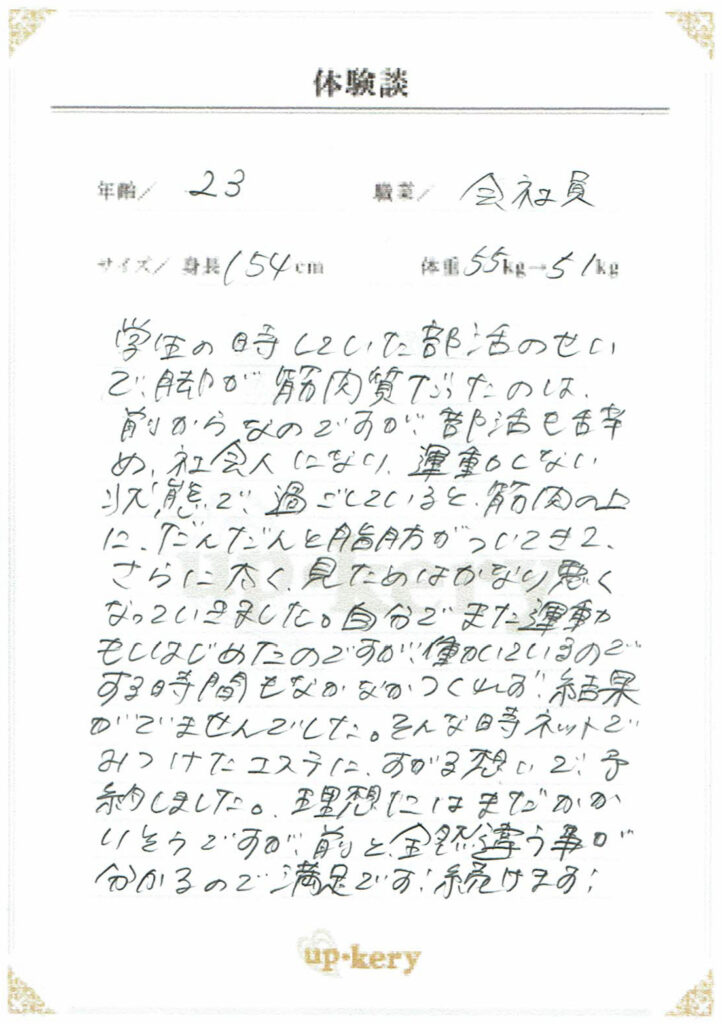 体験談
年齢/ 23 職業/ 会社員
サイズ/ 身長 154cm 体重 55kg→51kg
学生の時していた部活のせい
で、脚が筋肉質だったのは、
前からなのですが、部活も辞
め、社会人になり、運動しない
状態で、過ごしていると、筋肉の上
に、だんだんと脂肪がついてきて、
さらに太く、見ためはかなり悪く
なっていきました。自分でまた運動
もしはじめたのですが、働いているので
する時間もなかなかつくれず、結果
がでませんでした。そんな時ネットで
みつけたエステに、すがる想いで、予
約しました。理想にはまだかか
りそうですが、前と、全然違う事が
分かるので満足です!続けます!
up・kery
up・kery